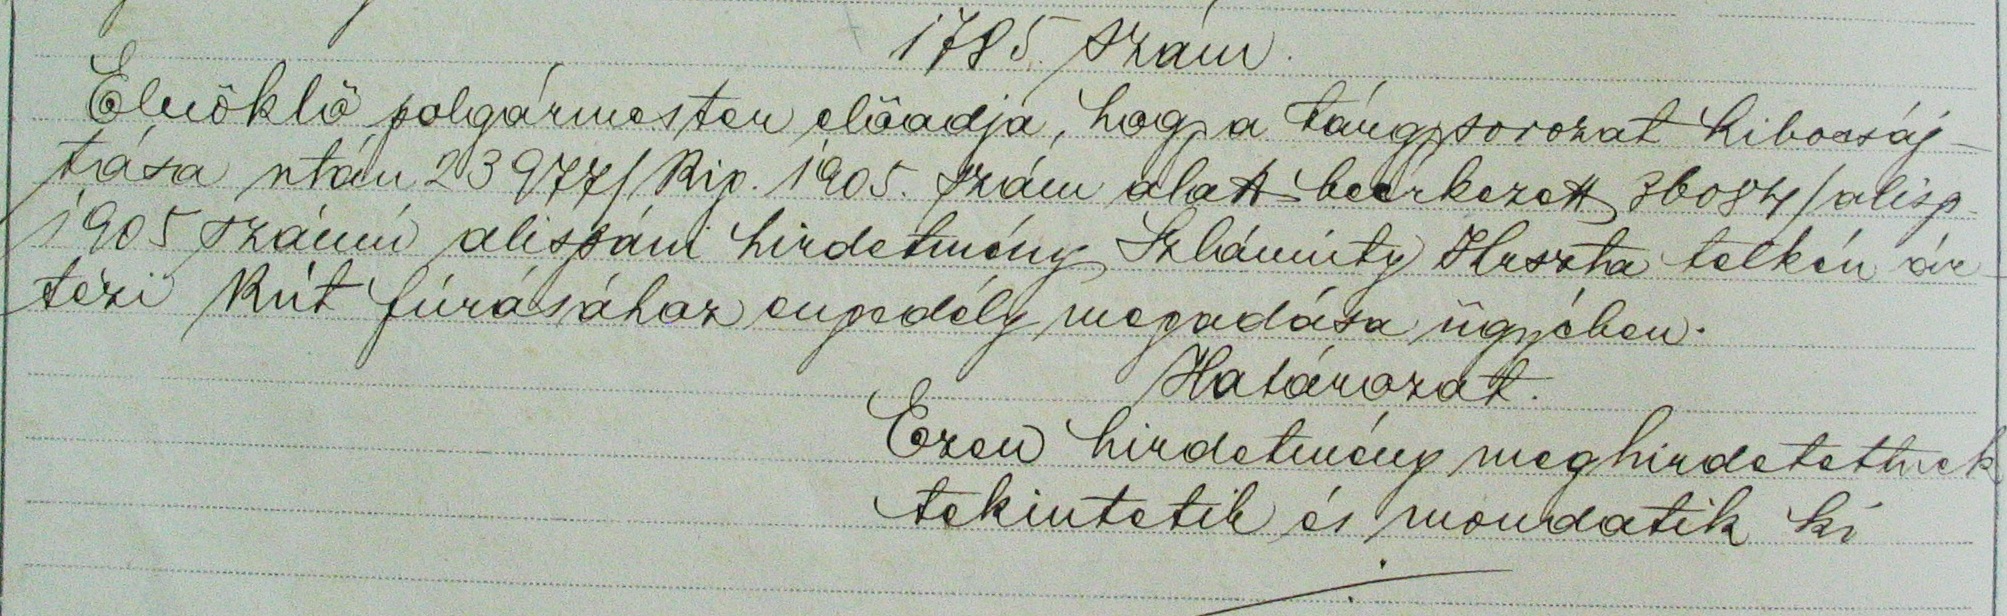 1785. szám.
Elnöklő polgármester előadja, hogy a tárgysorozat kibocsáj-
tása után 23977/Kig. 1905. szám alatt beérkezett 36084/alisp.
1905 számú alispáni hirdetmény telkén ár-
tézi kút fúrásához engedély megadása ügyében.
Határozat.
Ezen hirdetmény meghirdetettnek
tekintetik és mondatik ki